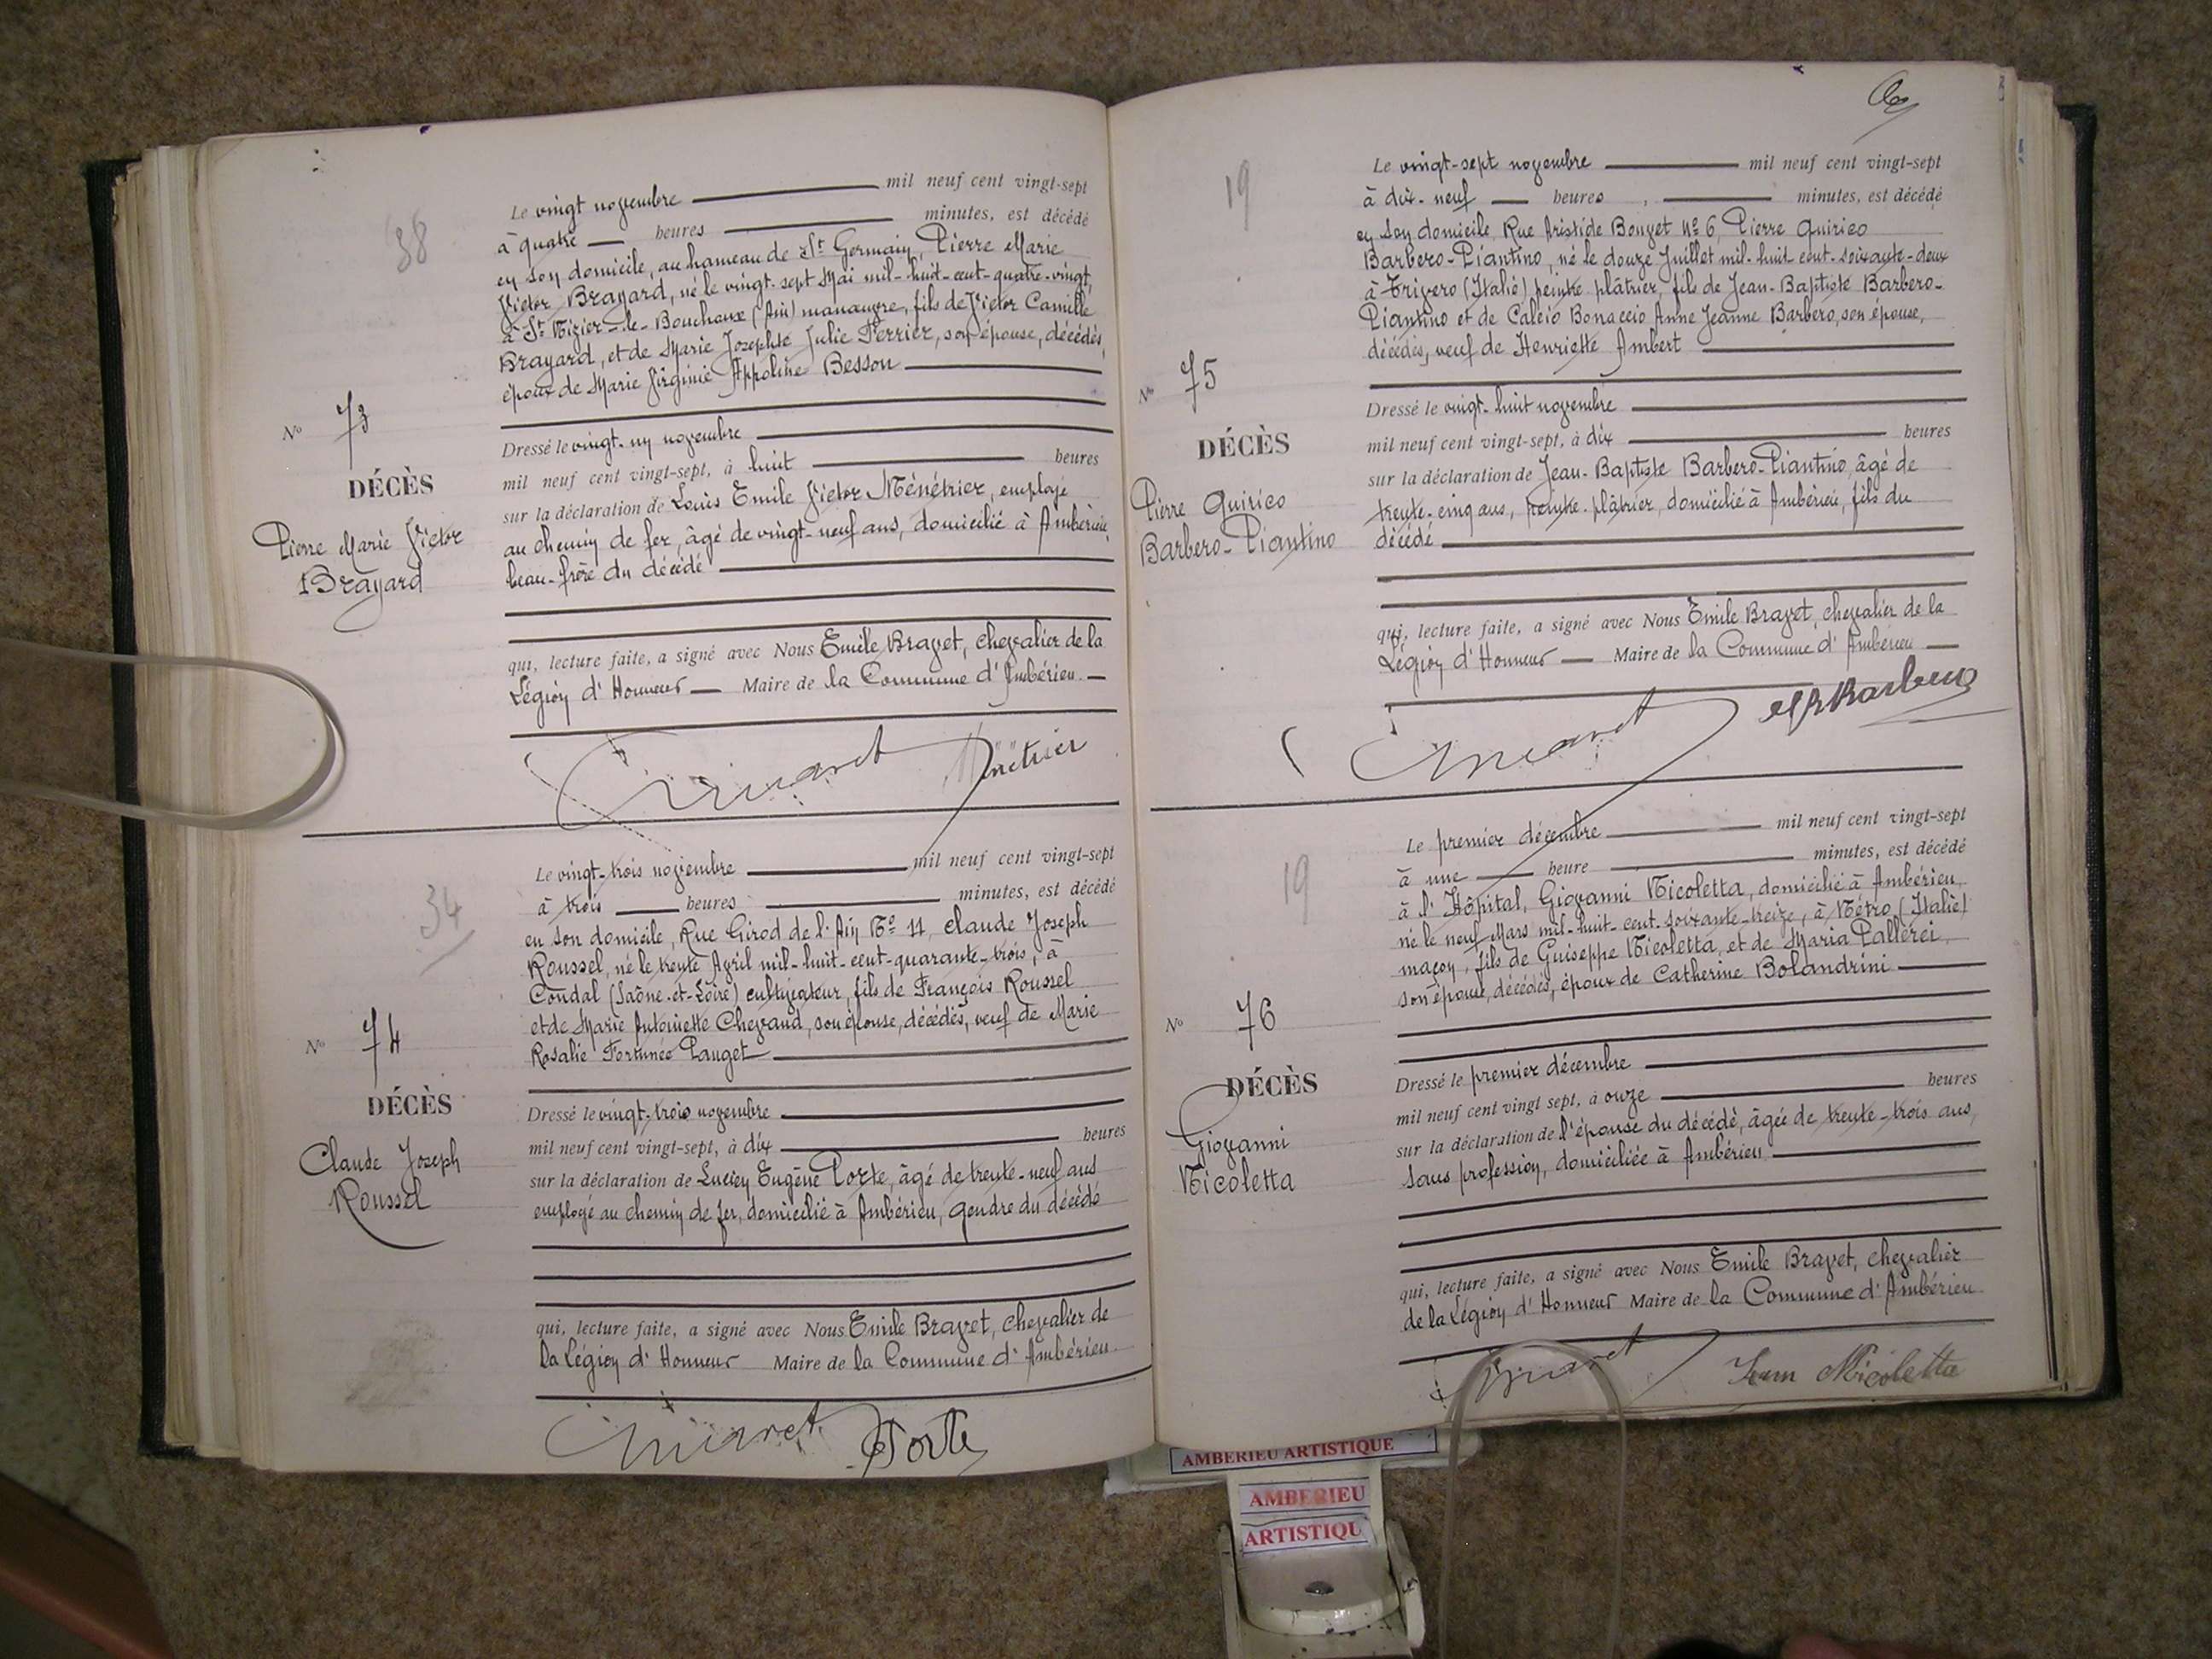 38
Le vingt novembre mil neuf cent vingt-sept
à quatre heures minutes, est décédé
en son domicile, au hameau de St Germain, Pierre Marie
Victor Brayard, né le vingt-sept Mai mil-huit-cent-quatre-vingt,
à St Nizier-le-Bouchoux (Ain) manœuvre, fils de Victor Camille
Brayard, et de Marie Josephte Julie Perrier, son épouse, décédés,
époux de Marie Virginie Appoline Besson
No 73
DÉCÈS
Pierre Marie Victor
Brayard
Dressé le vingt-un novembre
mil neuf cent vingt-sept, à huit heures
sur la déclaration de Louis Emile Victor Ménétrier, employé
au chemin de fer, âgé de vingt-neuf ans, domicilié à Ambérieu,
beau-frère du décédé
qui, lecture faite, a signé avec Nous Emile Bravet, chevalier de la
Légion d'Honneur Maire de la Commune d'Ambérieu.
Ménétrier
34
Le vingt-trois novembre mil neuf cent vingt-sept
à trois heures minutes, est décédé
en son domicile, Rue Girod de l'Ain No 11, Claude Joseph
Roussel, né le trente Avril mil-huit-cent-quarante-trois, à
Condal (Saône-et-Loire) cultivateur, fils de François Roussel
et de Marie Antoinette Chevaud, son épouse, décédés, veuf de Marie
Rosalie Fortunée Pauget
No 74
DÉCÈS
Claude Joseph
Roussel
Dressé le vingt-trois novembre
mil neuf cent vingt-sept, à dix heures
sur la déclaration de Lucien Eugène Porte, âgé de trente-neuf ans
employé au chemin de fer, domicilié à Ambérieu, gendre du décédé
qui, lecture faite, a signé avec Nous Emile Bravet, chevalier de
la Légion d'Honneur Maire de la Commune d'Ambérieu.
Porte
19
Le vingt-sept novembre mil neuf cent vingt-sept
à dix-neuf heures, minutes, est décédé
en son domicile, Rue Aristide Bouvet No 6, Pierre Quirico
Barbero-Piantino, né le douze Juillet mil-huit cent-soixante-deux
à Trivero (Italie) peintre plâtrier, fils de Jean-Baptiste Barbero-
Piantino et de Calcio Bonaccio Anne Jeanne Barbero, son épouse,
décédés, veuf de Henriette Ambert
No 75
DÉCÈS
Pierre Quirico
Barbero-Piantino
Dressé le vingt-huit novembre
mil neuf cent vingt-sept, à dix heures
sur la déclaration de Jean-Baptiste Barbero-Piantino, âgé de
trente-cinq ans, peintre-plâtrier, domicilié à Ambérieu, fils du
décédé
qui, lecture faite, a signé avec Nous Emile Bravet, chevalier de la
Légion d'Honneur Maire de la Commune d'Ambérieu
Barbero
19
Le premier décembre mil neuf cent vingt-sept
à une heure minutes, est décédé
à l'Hôpital, Giovanni Nicoletta, domicilié à Ambérieu,
né le neuf Mars mil-huit-cent-soixante-treize, à Nétro (Italie)
maçon, fils de Guiseppe Nicoletta, et de Maria Pallérei,
son épouse, décédés, époux de Catherine Bolandrini
No 76
DÉCÈS
Giovanni
Nicoletta
Dressé le premier décembre
mil neuf cent vingt sept, à onze heures
sur la déclaration de l'épouse du décédé, âgée de trente-trois ans,
sans profession, domiciliée à Ambérieu
qui, lecture faite, a signé avec Nous Emile Bravet, chevalier
de la Légion d'Honneur Maire de la Commune d'Ambérieu
Nicoletta
AMBERIEU ARTISTIQUE
AMBERIEU
ARTISTIQU